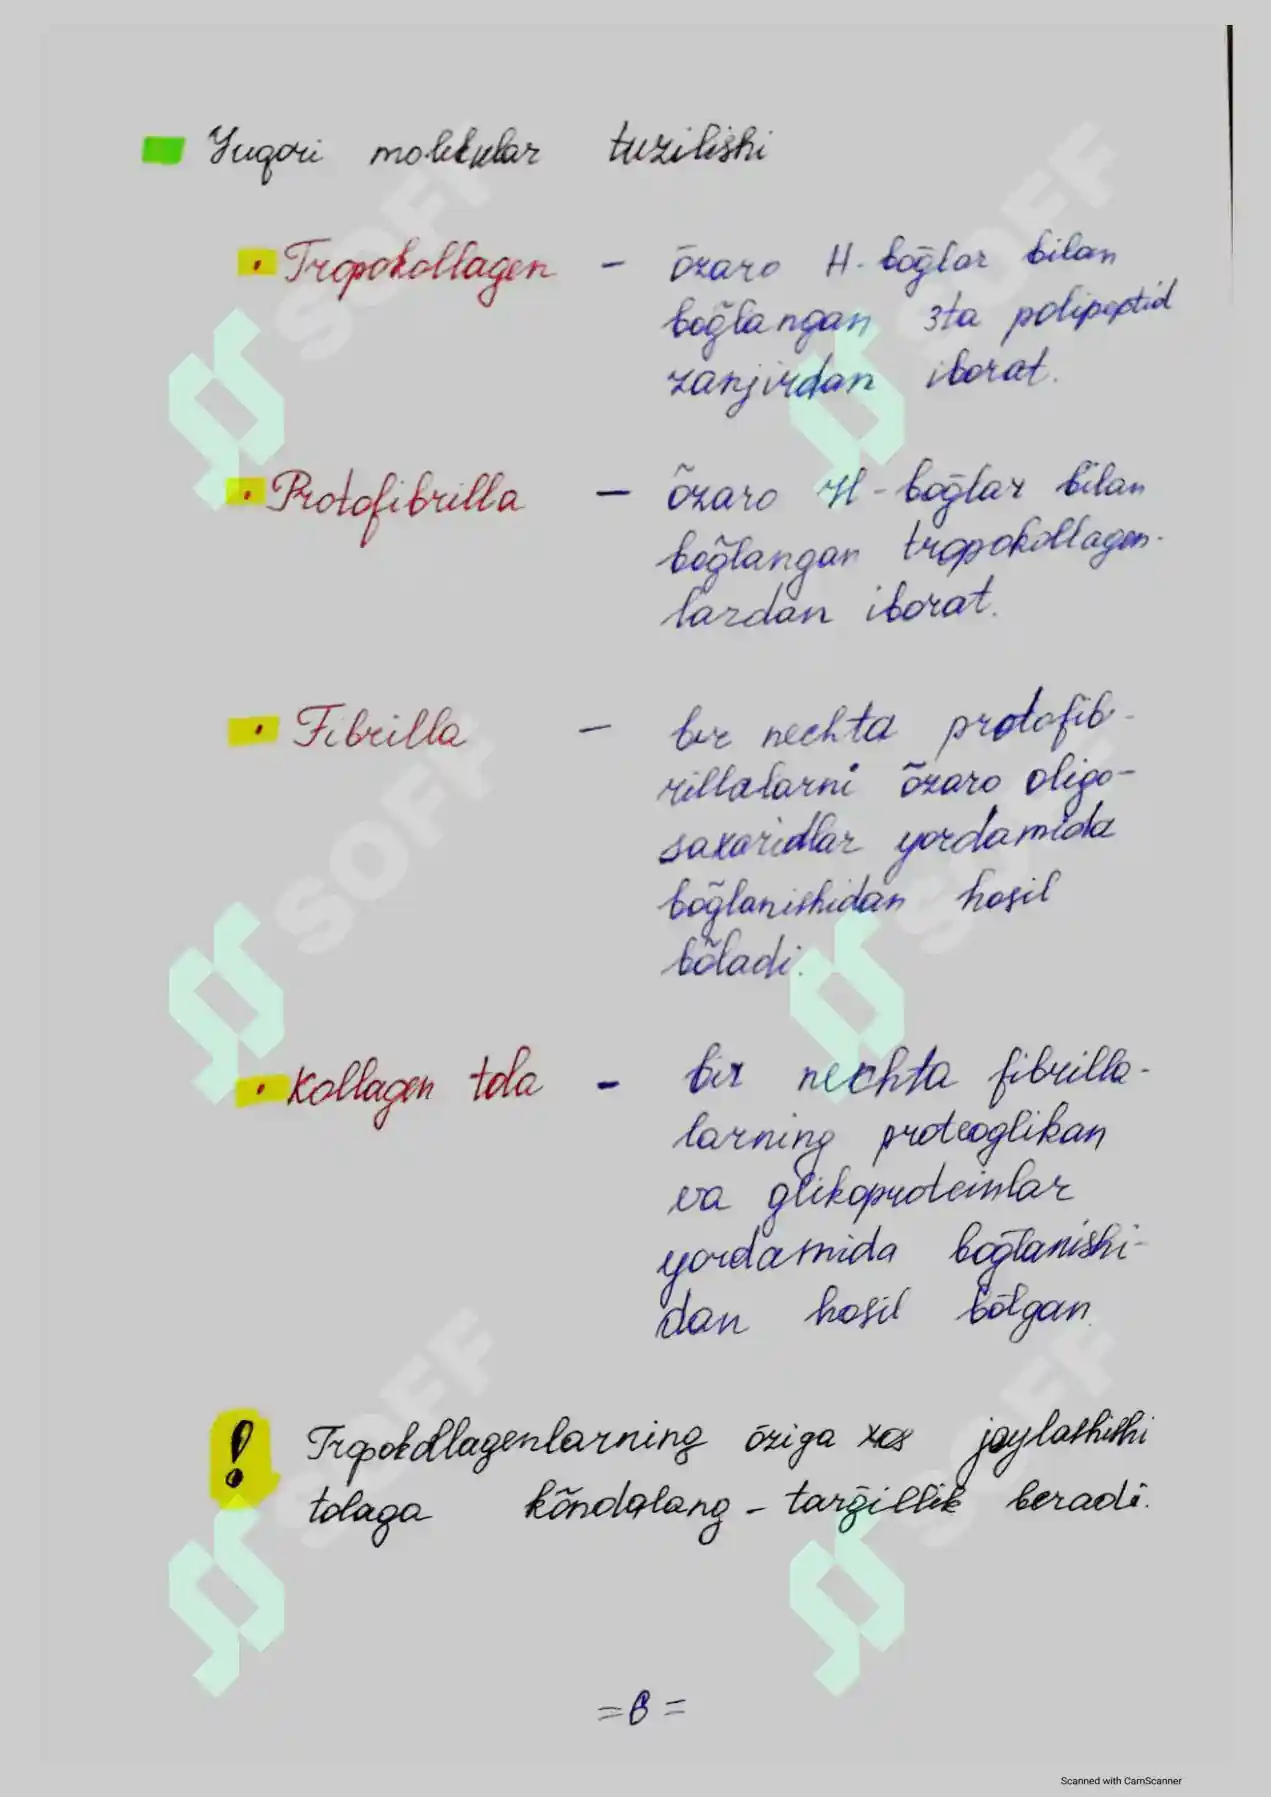 Yuqori molekular tuzilishi
• Tropokollagen – õzaro H-boğlar bilan
boğlangan 3ta polipeptid
zanjirdan iborat.
• Protofibrilla – õzaro H-boğlar bilan
boğlangan tropokollagen-
lardan iborat.
• Fibrilla – bir nechta protofib-
rillalarni õzaro oligo-
saxaridlar yordamida
boğlanishidan hosil
bõladi.
• Kollagen tola – bir nechta fibrilla-
larning proteoglikan
va glikoproteinlar
yordamida boğlanishi-
dan hosil bõlgan.
! Tropokollagenlarning õziga xos joylashishi
tolaga kõndalang-tarğillik beradi.
=6=
SOFF
SOFF
SOFF
SOFF
SOFF
SOFF
Scanned with CamScanner